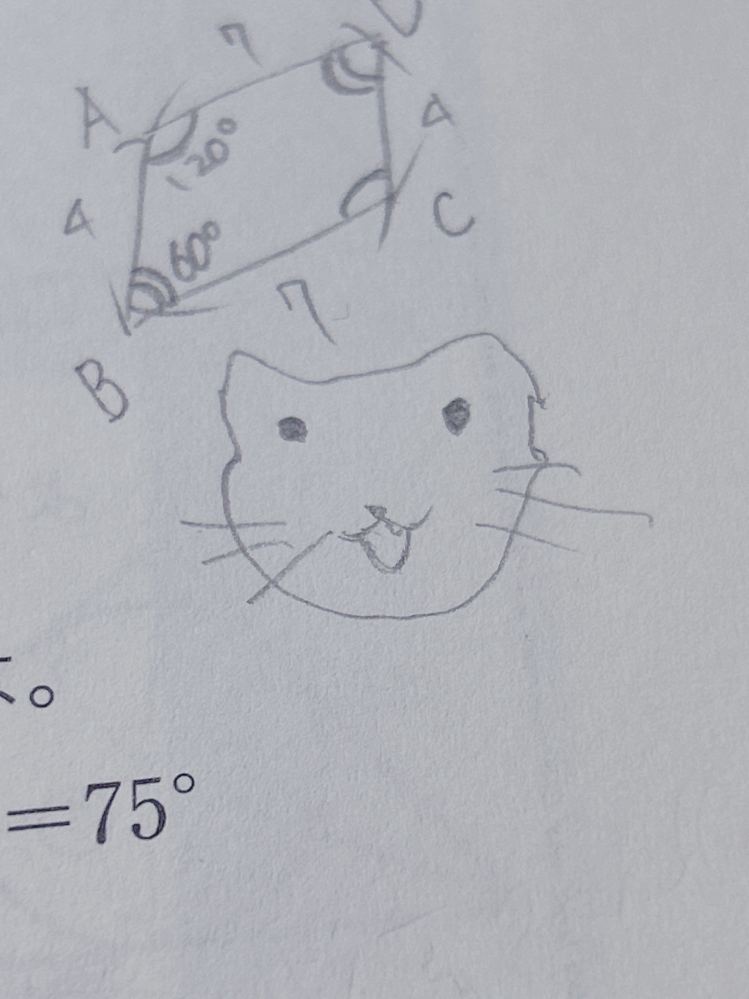 7
A
120°
4
4
60°
C
7
B
。
=75°